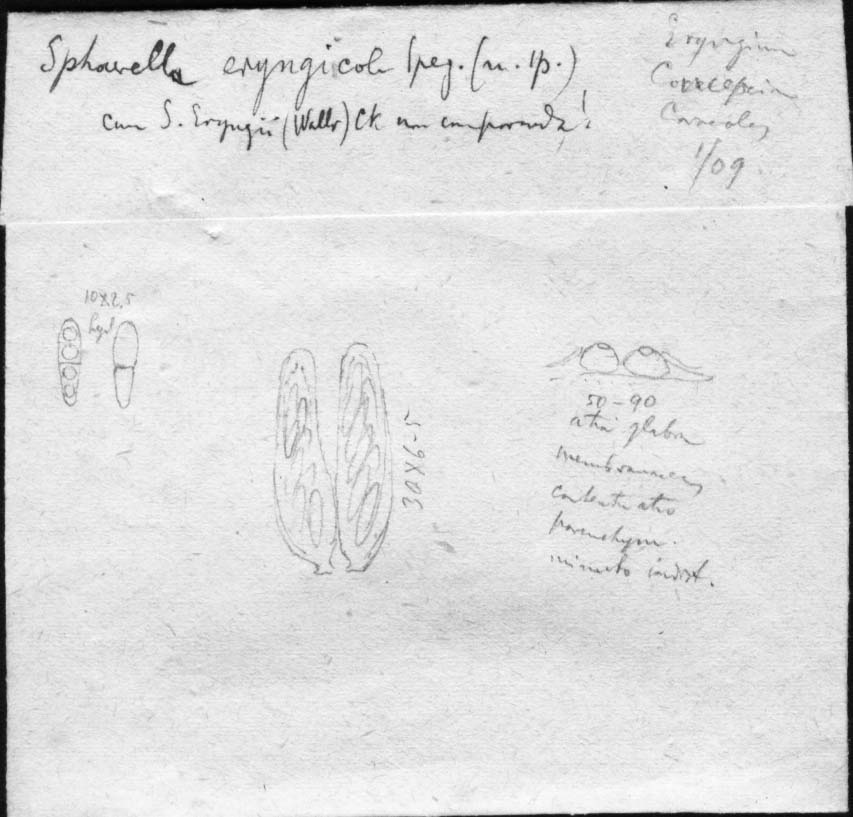 Sphaerella eryngicola Speg. (n. sp.)
cum S. Eryngii (Wallr) Ck non comparanda!
Eryngium
1/09
10X2.5
hyal
30X6-5
50-90
atri glabra
membranaceo
contextu atro
parenchym.
minuto indist.